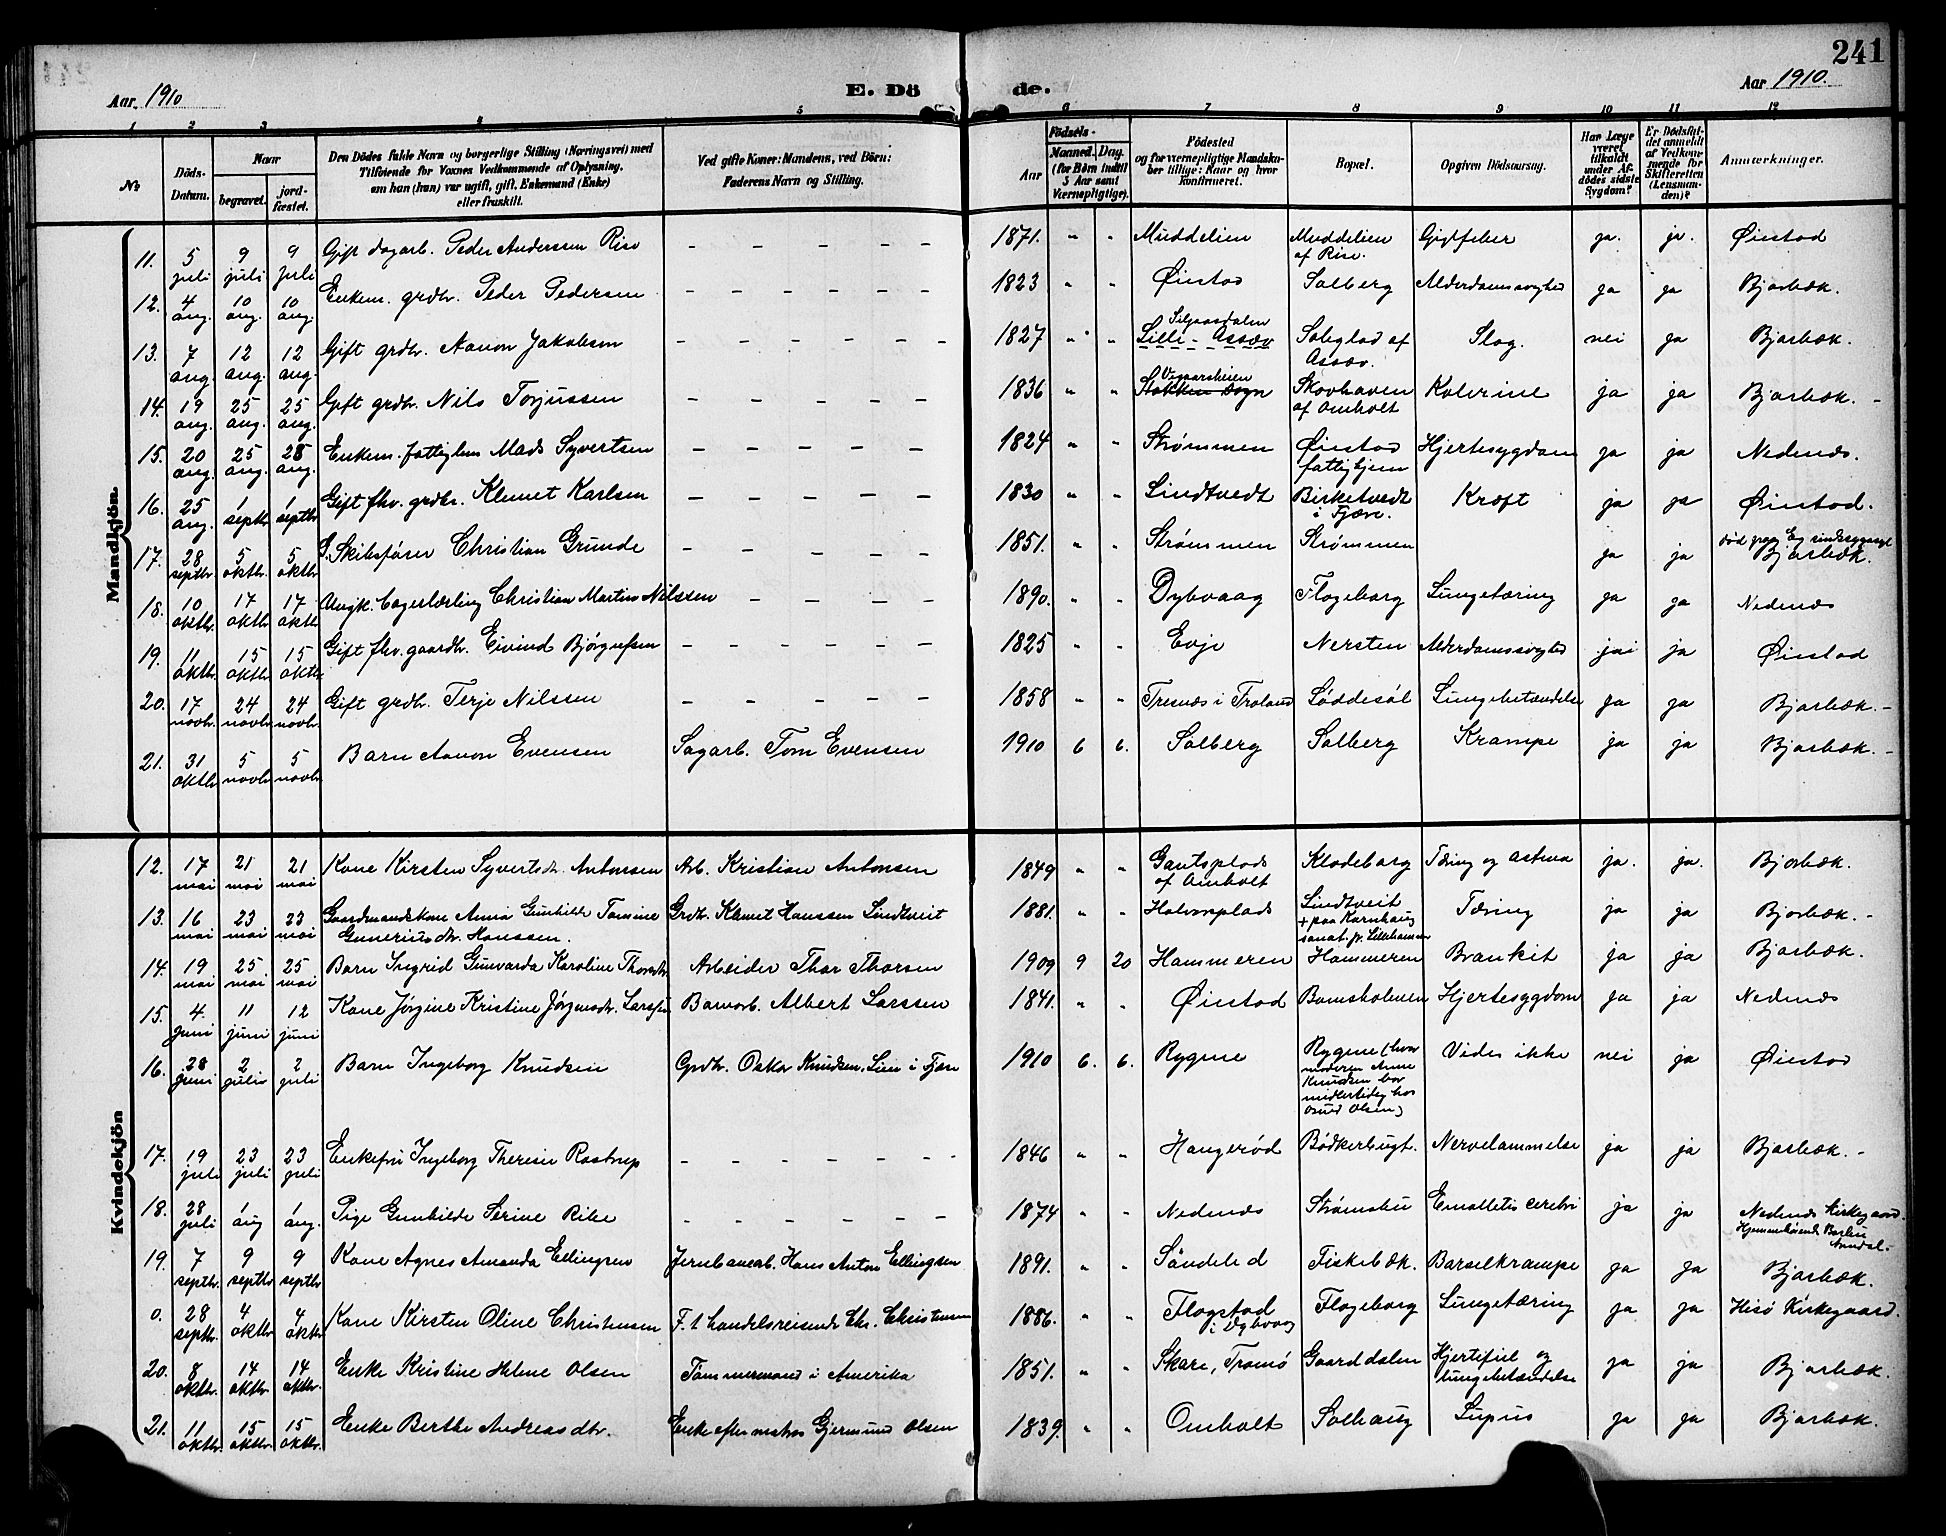 241
Aar 1910
E. Döde.
Aar 1910.
1 2 3 4 5 6 7 8 9 10 11 12
No
Döds-Datum.
Naar
begravet.
jord-fæstet.
Den Dödes fulde Navn og borgerlige Stilling (Næringsvei) med
Tilföiende for Voxnes Vedkommende af Oplysning,
om han (hun) var ugift, gift, Enkemand (Enke)
eller fraskilt.
Ved gifte Koner: Mandens, ved Börn:
Faderens Navn og Stilling.
Aar
Födsels-
Maaned. Dag.
(for Börn indtil
5 Aar samt
Værnepligtige).
Födested
og for værnepligtige Mandskaber tillige: Naar og hvor
konfirmeret.
Bopæl.
Opgiven Dödsaarsag.
Har Læge
været
tilkaldt
under Afdödes sidste
Sygdom?
Er Dödsfaldet anmeldt
af Vedkommende for
Skifteretten
(Lensmanden)?
Anmærkninger.
Mandkjön.
11. 5 juli 9 juli 9 juli Gift dagarb. Peder Anderssen Rise – – – – – 1871. " " Muddelien Muddelien af Rise. Gigtfeber ja. ja. Øiestad
12. 4 aug. 10 aug. 10 aug. Enkem. grdbr. Peder Pedersen – – – – – 1823 " " Øiestad Solberg Alderdomssvaghed ja ja Bjorbæk.
13. 7 aug. 12 aug. 12 aug. Gift grdbr. Aanon Jakobsen – – – – – 1827 " " Lille-Assæv af Assæv. Slag. nei ja Bjorbæk.
14. 19 aug. 25 aug. 25 aug. Gift grdbr. Nils Torjussen – – – – – 1836 " " Vegaarsheien Stokken Sogn Skovhaven af Omholt Kolerine ja ja Bjorbæk. -
15. 20 aug. 25 aug. 28 aug. Enkem. fattiglem Mads Syvertsen – – – – – 1824 " " Strømmen Øiestad fattighjem Hjertesygdom ja ja Nedenes.
16. 25 aug. 1 septbr 1 septbr Gift fhv. grdbr. Klemet Karlsen – – – – – 1830 " " Lindtvedt Birketvedt i Fjære. Kræft ja ja Øiestad.
17. 28 septbr 5 oktbr 5 oktbr G. Skibsfører Christian Grunde – – – – – 1851. " " Strømmen Strømmen ja ja død paa Eg sindssygeasyl Bjorbæk.
18. 10 oktbr 17 oktbr 17 oktbr Ungk. bagerlærling Christian Martin Nilssen – – – – 1890. " " Dybvaag Flageborg Lungetæring ja ja Nedenes
19. 11 oktbr 15 oktbr 15 oktbr Gift fhv. gaardbr. Eivind Bjørgufsen – – – – – 1825 " " Evje Nersten Alderdomssvaghed ja ja Øiestad
20. 17 novbr. 24 novbr 24 novbr. Gift grdbr. Terje Nilssen – – – – – 1858 " " Tresnæs i Froland Løddesøl Lungebetændelse ja ja Bjorbæk. -
21. 31 oktbr 5 novbr 5 novbr Barn Aanon Evensen Sagarb. Tom Evensen 1910 6 6. Solberg Solberg Krampe ja ja Bjorbæk. -
Kvindekjön
12. 17 mai 21 mai 21 mai Kone Kirsten Syvertsdr. Antonsen Arb. Kristian Antonsen 1849 " " af Omholt Klodeborg Tæring og astma ja. ja. Bjorbæk.
13. 16 mai 23 mai 23 mai Gaardmandskone Anna Gunhilde Tomine Gunerius dr. Hanssen. Grdbr. Klemet Hanssen Lindtveit 1881. " " Halvorsplads Lindtveit + paa Kornhaug sanat. pr. Lillehammer Tæring ja ja Bjorbæk. -
14. 19 mai 25 mai 25 mai Barn Ingrid Gunvarda Karoline Thorsdr Arbeider Thor Thorsen 1909 9 20 Hammeren Hammeren Bronkit ja ja Bjorbæk.
15. 4. juni 11 juni 12 juni Kone Jørgine Kristine Jørgensdr. Larssen Albert Larssen 1841. " " Øiestad Hjertesygdom ja ja Nedenes
16. 28 juni 2 juli 2 juli Barn Ingeborg Knudsen Grdbr. Oskar Knudsen, Lien i Fjære 1910 6. 6. Rygene Rygene (hvor moderen Anne Knudsen bor midlertidig hos Osuld Olsen) Vides ikke nei ja Øiestad
17. 19 juli 23 juli 23 juli Enkefru Ingeborg Theresie Rostrup – – – – – – 1846 " " Haugerød Bødkerbugt. Nervelammelse ja ja Bjorbæk. -
18. 28 juli 1 aug 1 aug. Pige Gunhilde Serine Rike – – – – – – 1874 " " Nedenes Strømsbu cerebri ja ja Nedenes kirkegaard. Hjemmehørende Barbu Arendal. -
19. 7 septbr. 9 septbr 9 septbr Kone Agnes Amanda Ellingsen Jernbanearb. Hans Anton Ellingsen 1891. " " Söndeled Fiskebæk. Barselkrampe ja ja Bjorbæk.
0. 28 septbr. 4 oktbr 4 oktbr Kone Kirsten Oline Christensen F. t handelsreisende Chr. Christensen 1886. " " Flogstad i Dybvaag Flageborg Lungetæring ja ja Hisö Kirkegaard.
20. 8 oktbr. 14 oktbr 14 oktbr. Enke Kristine Helene Olsen Tømmermand i Amerika 1851. " " Skare, Tromø Gaarddalen Hjertefeil og lungebetændelse ja ja Bjorbæk.
21. 11 oktbr. 15 oktbr 15 oktbr. Enke Berthe Andreasdtr. Enke efter matros Gjermund Olsen 1839. " " Omholt Solhaug Lupus ja ja Bjorbæk.